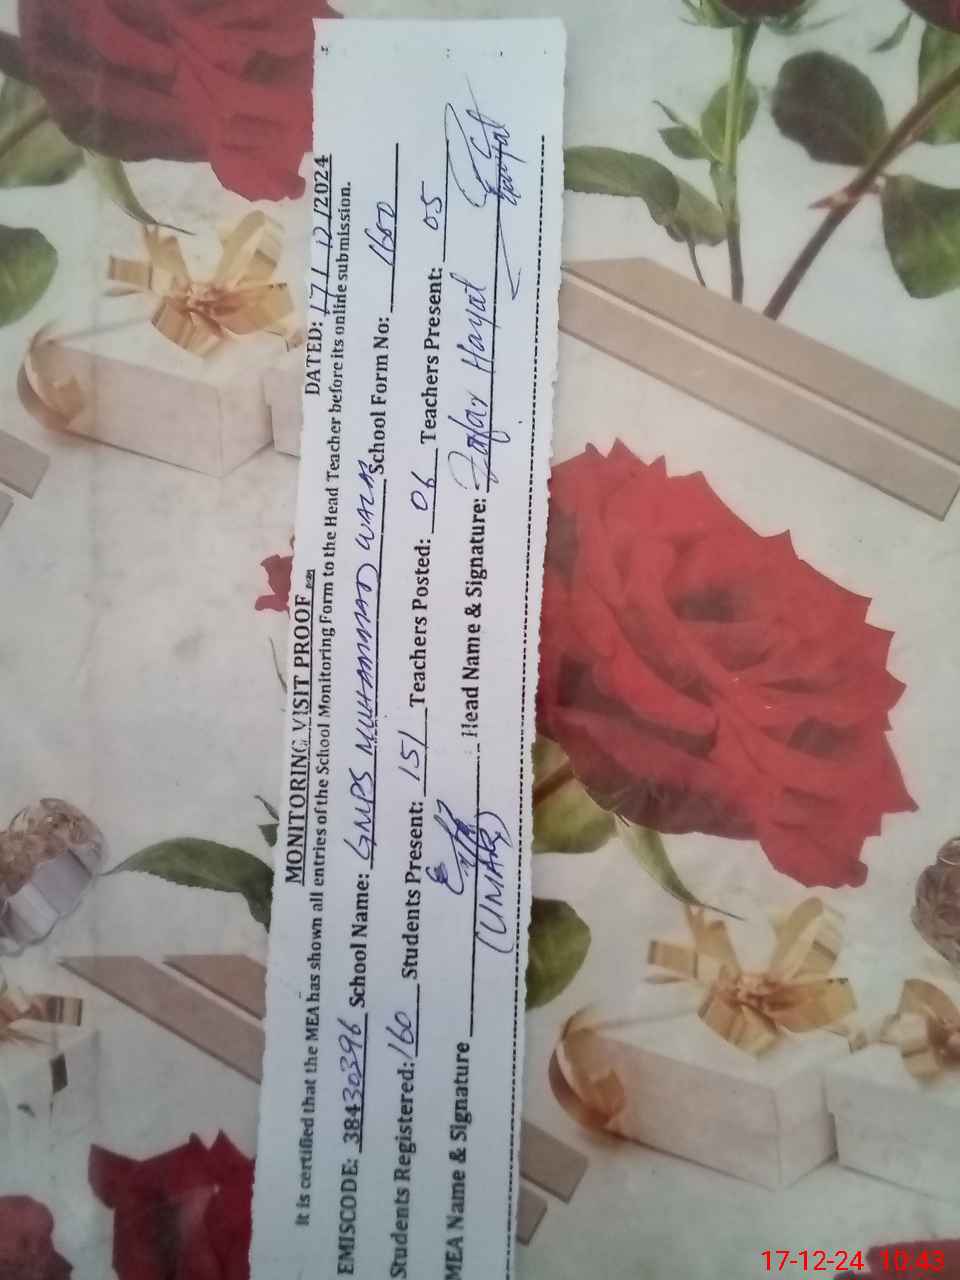 MONITORING VISIT PROOF DATED: 17/12/2024
It is certified that the MEA has shown all entries of the School Monitoring Form to the Head Teacher before its online submission.
EMISCODE: 38430396 School Name: GMPS MUHAMMAD WALA School Form No: 160
Students Registered: 160 Students Present: 151 Teachers Posted: 06 Teachers Present: 05
MEA Name & Signature (UMAR) Head Name & Signature: Zafar Hayat
17-12-24 10:43